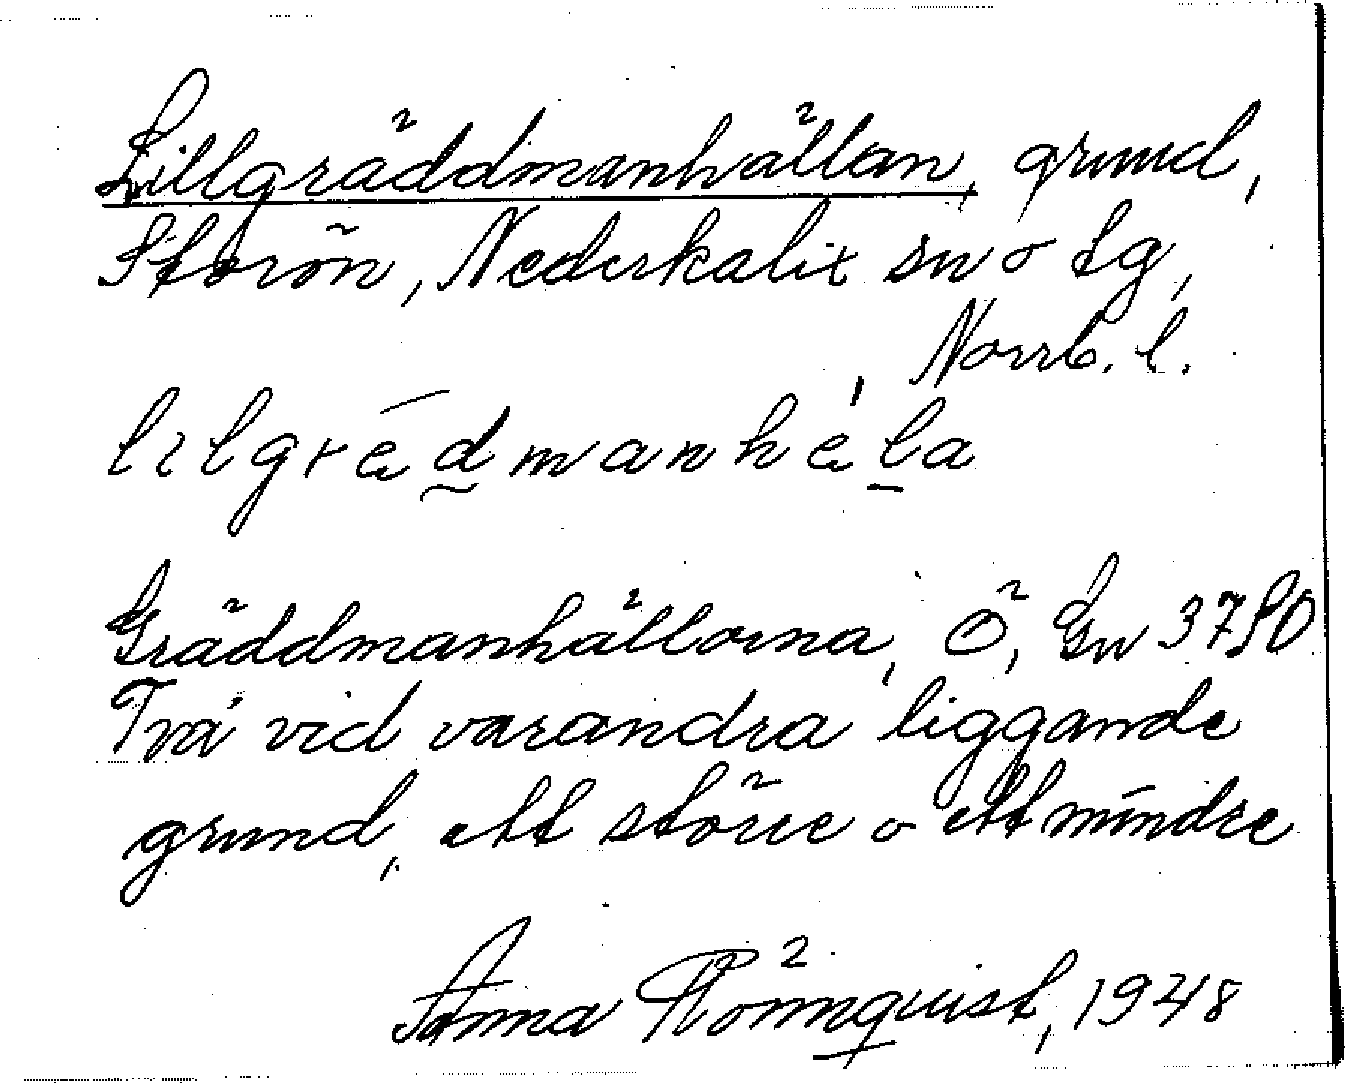 Lillgräddmanhällan, grund,
Storön, Nederkalix sn o tg,
Norrb. l.
lilgrä́dmanhä̀la
Gräddmanhällorna, Ö, Gn 3750
Två vid varandra liggande
grund, ett större o ett mindre
Anna Rönnquist, 1948